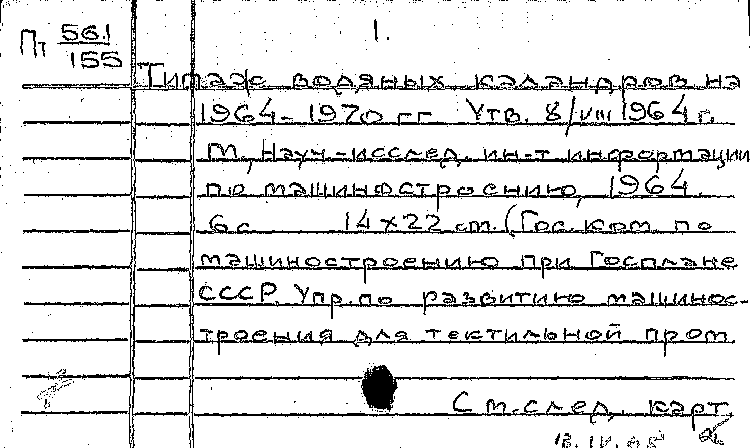 1.
Пт 561/155
Типаж водяных каландров на
1964-1970 гг Утв. 8/VIII 1964 г.
М., Науч-исслед. ин-т информации
по машиностроению, 1964.
6 с 14×22 см. (Гос. ком. по
машиностроению при Госплане
СССР. Упр. по развитию машинос-
троения для текстильной пром.
См. след. карт.